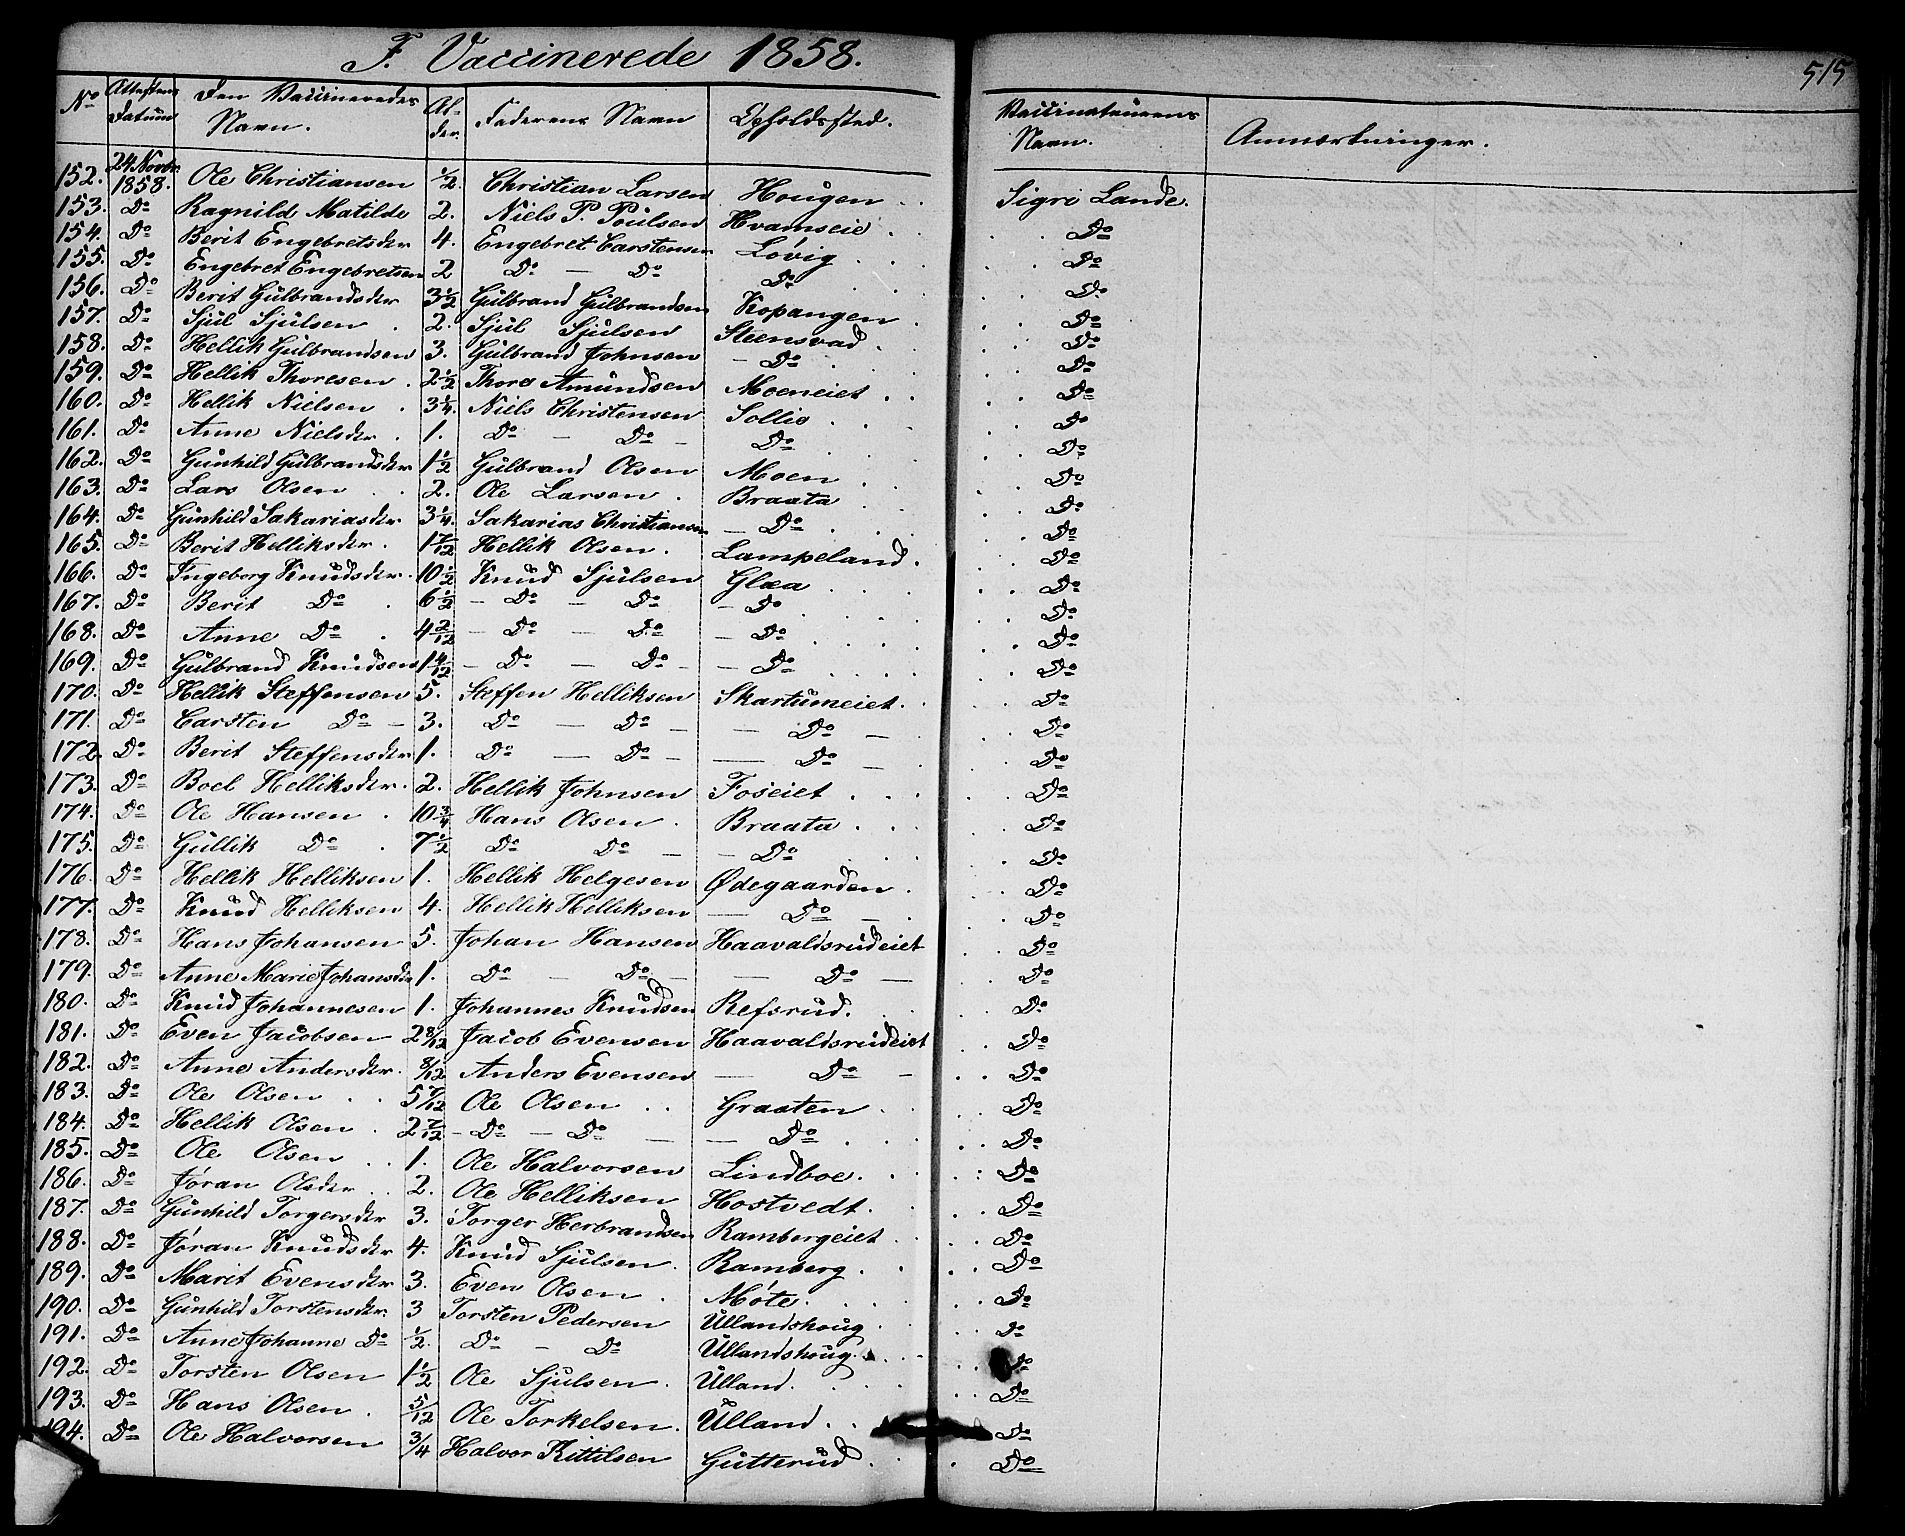 F. Vaccinerede 1858.
515
No | Attestens Datum | Den Vaccineredes Navn. | Alder. | Faderens Navn | Opholdssted. | Vaccinateurens Navn. | Anmærkninger.
152. 24 Novbr 1858. Ole Christiansen 1/2. Christian Larsen Hougen . . Sigri Lande.
153. Do Ragnild Matilde 2. Niels P. Poulsen Hvamseie . . . Do
154. Do Berit Engebretsder 4. Engebret Carstensen Løvig . . . . Do
155. Do Engebret Engebretsen 2 Do — Do Do . . . Do
156. Do Berit Gulbrandsder 3 1/2 Gulbrand Gulbrandsen Kopangen . . . Do
157. Do Sjul Sjulsen . 2. Sjul Sjulsen Steensvad . . . Do
158. Do Hellik Gulbrandsen 3. Gulbrand Johnsen — Do . . . Do
159. Do Hellik Thoresen . 2 1/2 Thore Amundsen Moeneiet . . . . Do
160. Do Hellik Nielsen . 3 1/4. Niels Christensen Sollie . . . . Do
161. Do Anne Nielsder . 1. Do — Do — Do . . . Do
162. Do Gunhild Gulbrandsder 1 1/2 Gulbrand Olsen Moen . . . . Do
163. Do Lars Olsen . . 2. Ole Larsen . Braata . . . . Do
164. Do Gunhild Sakariasder 3 1/4. Sakarias Christiansen — Do . . . . Do
165. Do Berit Helliksder . 1 7/12 Hellik Olsen . Lampeland . . . Do
166. Do Ingeborg Knudsder . 10 1/2 Knud Sjulsen Glæa . . . . Do
167. Do Berit Do . 6 1/2 — Do — Do — Do . . . Do
168. Do Anne Do . 4 2/12 — Do — Do — Do . . . . Do
169. Do Gulbrand Knudsen 1 4/12 — Do — Do — — Do . . . . Do
170. Do Hellik Steffensen 5. Steffen Helliksen Skartumeiet . . . . Do
171. Do Carsten Do — 3. Do — Do — — Do — . Do
172. Do Berit Steffensder 1. Do — Do — — Do — . Do
173. Do Boel Helliksder . 2. Hellik Johnsen Foseiet . . . . . Do
174. Do Ole Hansen . 10 3/4 Hans Olsen . Braata . . . . Do
175. Do Gullik Do . 7 1/2 Do Do — — Do . . . Do
176. Do Hellik Helliksen 1. Hellik Helgesen Ødegaarden . . . Do
177. Do Knud Helliksen 4. Hellik Helliksen — Do — . . Do
178. Do Hans Johansen 5. Johan Hansen Haavaldsrudeiet . . Do
179. Do Anne Marie Johansder 1. Do — Do — — Do — . . Do
180. Do Knud Johannesen 1. Johannes Knudsen Refsrud. . . . Do
181. Do Even Jacobsen 2 8/12 Jacob Evensen Haavaldsrudeiet . . Do
182. Do Anne Andersder . 8/12 Anders Evensen — Do — . . Do
183. Do Ole Olsen . . 5 7/12 Ole Olsen . . Graaten . . . . Do
184. Do Hellik Olsen . 2 7/12 — Do — Do — — Do . . . . Do
185. Do Ole Olsen . . 1. Ole Halvorsen Lindboe. . . . Do
186. Do Jøran Olsder . . 2. Ole Helliksen Hostvedt. . . . Do
187. Do Gunhild Torgersder 3. Torger Herbrandsen Rambergeiet . . . . Do
188. Do Jøran Knudsder 4. Knud Sjulsen . Ramberg . . . . Do
189. Do Marit Evensder 3. Even Olsen . Møte. . . . . Do
190. Do Gunhild Torstensder 3 Torsten Pedersen Ullandshoug . . . Do
191. Do Anne Johanne Do 1/2. Do — Do Ullandshoug . . . Do
192. Do Torsten Olsen 1 1/2 Ole Sjulsen . Ulland. . . . . Do
193. Do Hans Olsen . 5/12 Ole Torkelsen. Ulland . . Do
194. Do Ole Halvorsen 3/4 Halvor Kittilsen Gutterud . . . Do